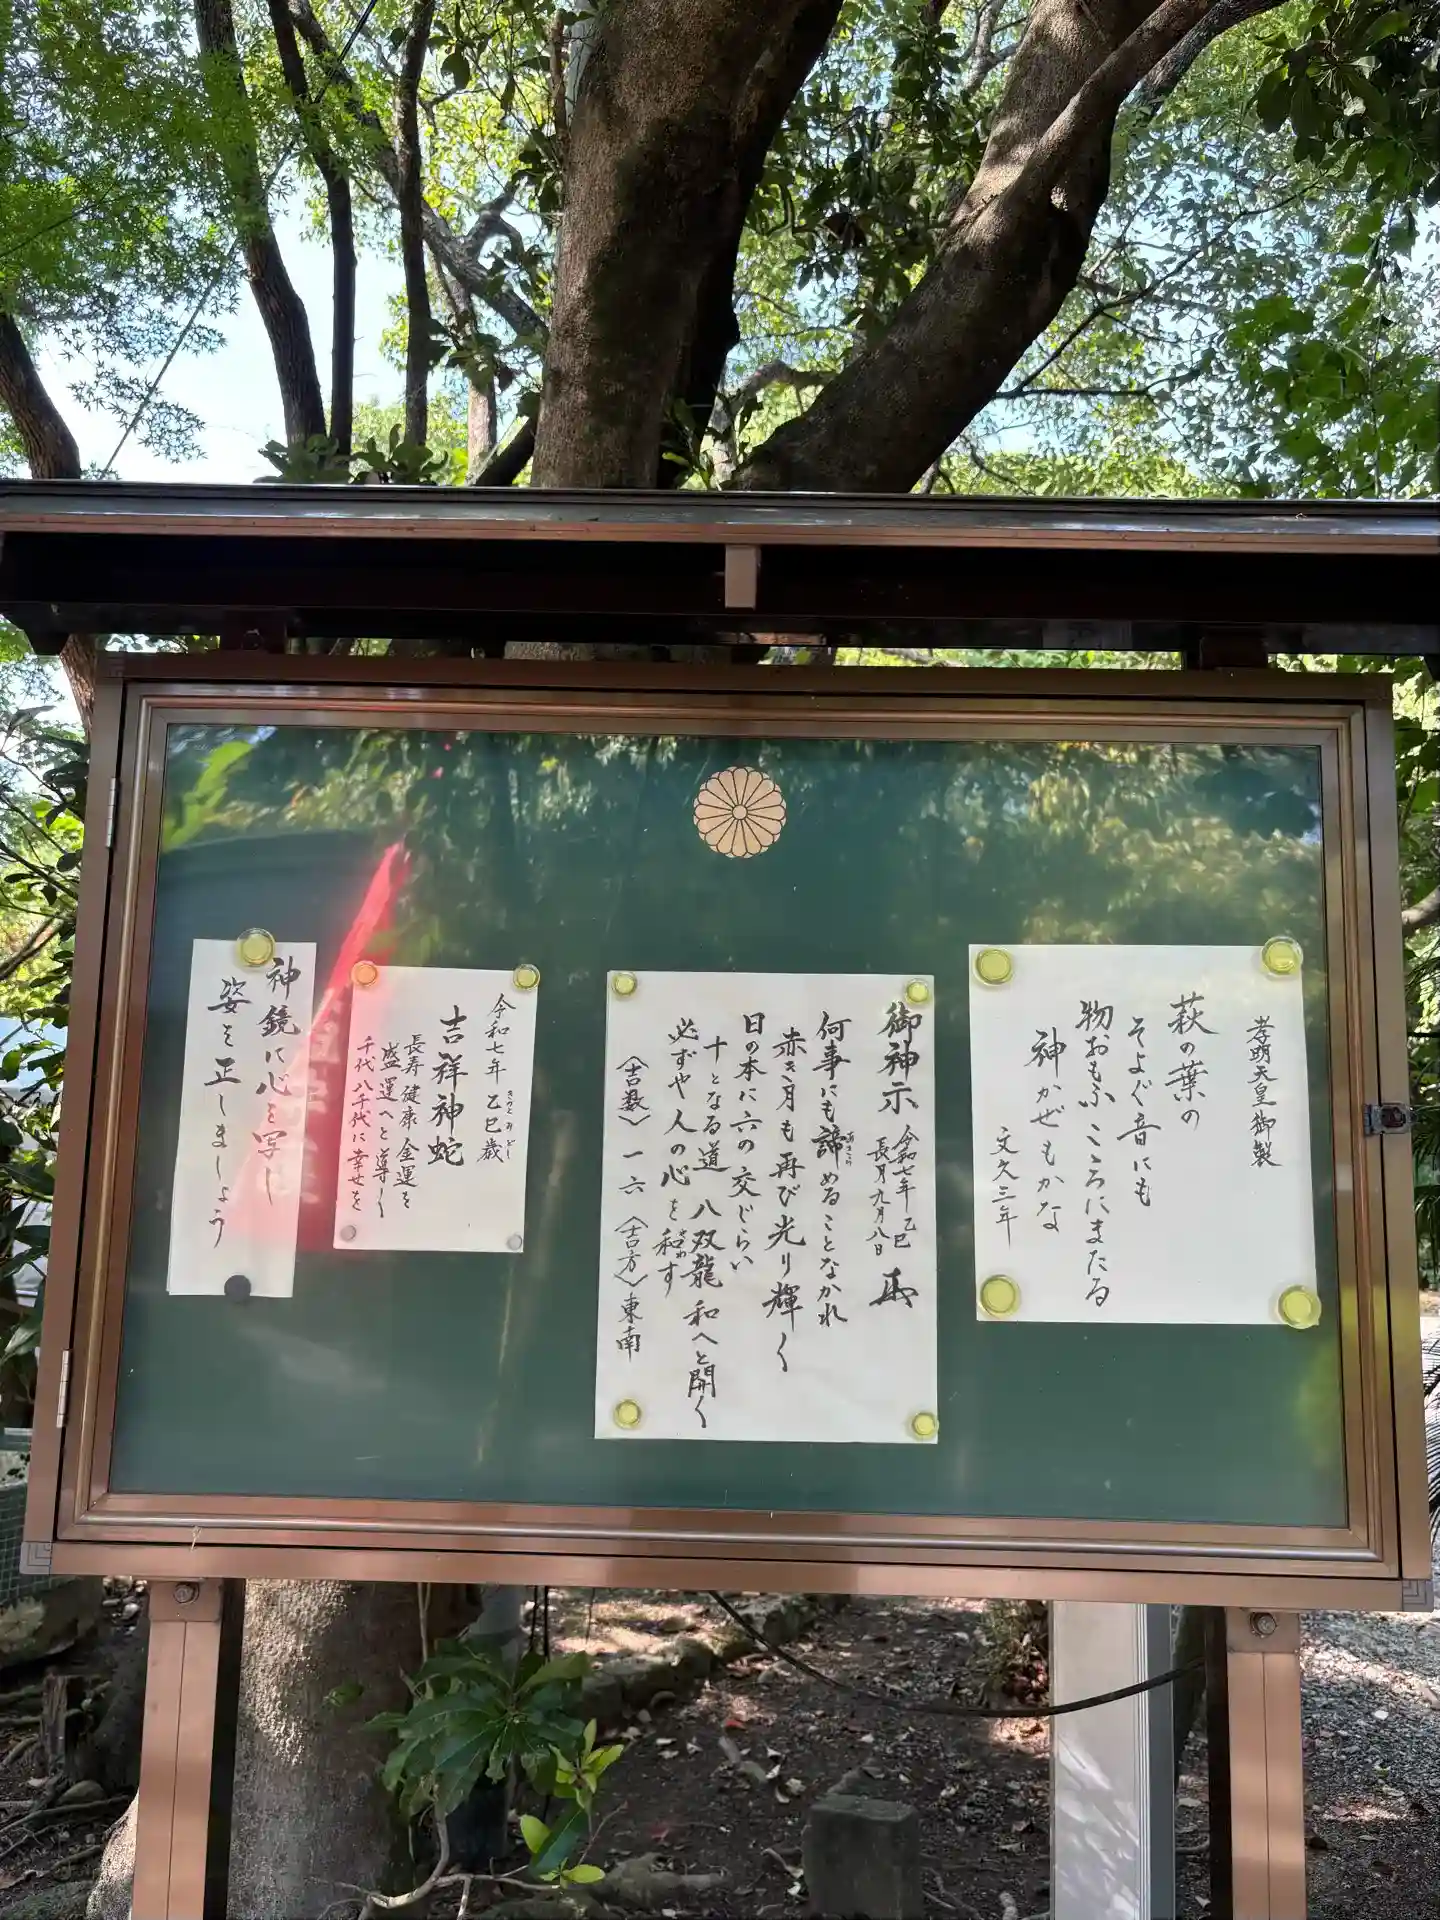 孝明天皇御製
萩の葉の
そよぐ音にも
物おもふこころにまたる
神かぜもかな
文久三年
御神示 令和七年 乙巳
長月九月八日
何事にも諦めることなかれ
あきら
赤き月も再び光り輝く
日の本に六の交じらい
十となる道 八双龍 和へと開く
必ずや人の心を和す
さわ
〈吉数〉一 六 〈吉方〉東南
令和七年 乙巳歳
きのとみどし
吉祥神蛇
長寿 健康 金運を
盛運へと導く
千代八千代に幸せを
神鏡に心を写し
姿を正しましょう